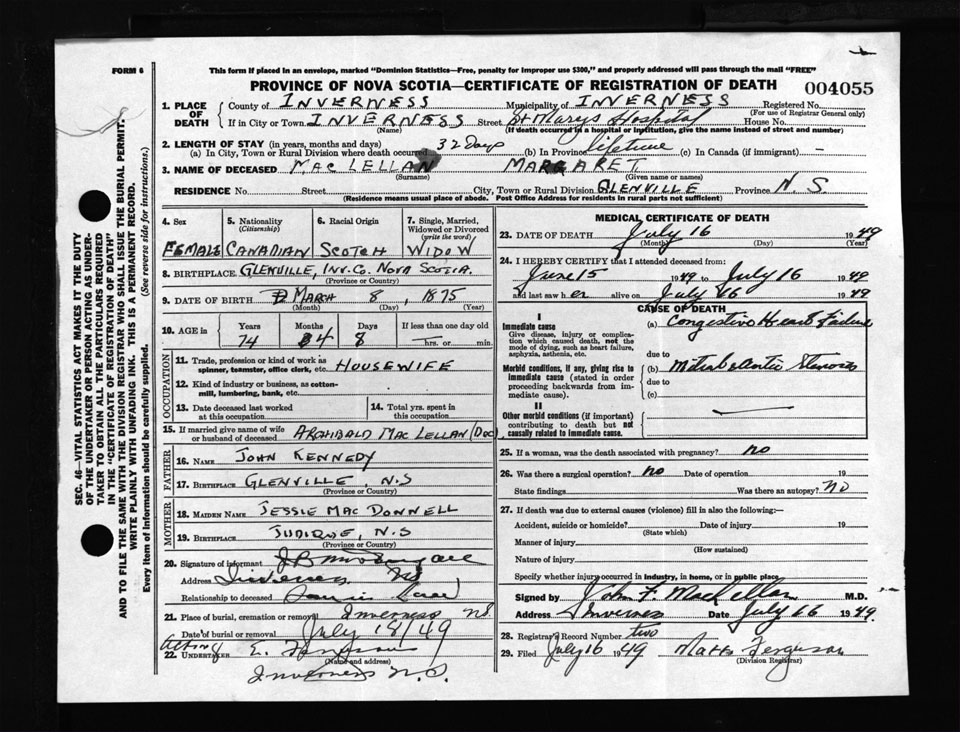 FORM 6
This form if placed in an envelope, marked "Dominion Statistics—Free, penalty for improper use $300," and properly addressed will pass through the mail "FREE"
PROVINCE OF NOVA SCOTIA—CERTIFICATE OF REGISTRATION OF DEATH
004055
1. PLACE OF DEATH { County of INVERNESS Municipality of INVERNESS Registered No.
(For use of Registrar General only)
If in City or Town INVERNESS Street St Marys Hospital House No.
(Name) (If death occurred in a hospital or institution, give the name instead of street and number)
2. LENGTH OF STAY (in years, months and days)
(a) In City, Town or Rural Division where death occurred 32 Days (b) In Province lifetime (c) In Canada (if immigrant) —
3. NAME OF DECEASED MAC LELLAN MARGARET
(Surname) (Given name or names)
RESIDENCE No. Street City, Town or Rural Division GLENVILLE Province N.S.
(Residence means usual place of abode. Post Office Address for residents in rural parts not sufficient)
4. Sex
FEMALE
5. Nationality (Citizenship)
CANADIAN
6. Racial Origin
SCOTCH
7. Single, Married, Widowed or Divorced (write the word)
WIDOW
8. BIRTHPLACE GLENVILLE, INV. CO. NOVA SCOTIA.
(Province or Country)
9. DATE OF BIRTH MARCH 8, 1875
(Month) (Day) (Year)
10. AGE in { Years Months Days If less than one day old
74 4 8 hrs. or min.
OCCUPATION
11. Trade, profession or kind of work as spinner, teamster, office clerk, etc. HOUSEWIFE
12. Kind of industry or business, as cotton-mill, lumbering, bank, etc.
13. Date deceased last worked at this occupation
14. Total yrs. spent in this occupation
15. If married give name of wife or husband of deceased ARCHIBALD MAC LELLAN (DOC)
FATHER
16. NAME JOHN KENNEDY
17. BIRTHPLACE GLENVILLE, N.S
(Province or Country)
MOTHER
18. MAIDEN NAME JESSIE MAC DONNELL
19. BIRTHPLACE JUDIQUE, N.S
(Province or Country)
20. Signature of informant
Address Inverness NS
Relationship to deceased
21. Place of burial, cremation or removal Inverness NS
Date of burial or removal July 18/49
Acting
22. UNDERTAKER E.
(Name and address)
Inverness N.S.
MEDICAL CERTIFICATE OF DEATH
23. DATE OF DEATH July 16 1949
(Month) (Day) (Year)
24. I HEREBY CERTIFY that I attended deceased from:
June 15 1949 to July 16 1949
and last saw her alive on July 16 1949
CAUSE OF DEATH
I
Immediate cause
Give disease, injury or complication which caused death, not the mode of dying, such as heart failure, asphyxia, asthenia, etc.
(a) Congestive Heart Failure
due to
Morbid conditions, if any, giving rise to immediate cause (stated in order proceeding backwards from immediate cause).
(b) Mitral & Aortic Stenosis
due to
(c)
II
Other morbid conditions (if important) contributing to death but not causally related to immediate cause.
25. If a woman, was the death associated with pregnancy? no
26. Was there a surgical operation? no Date of operation 19
State findings Was there an autopsy? no
27. If death was due to external causes (violence) fill in also the following:—
Accident, suicide or homicide? Date of injury 19
(State which)
Manner of injury
(How sustained)
Nature of injury
Specify whether injury occurred in industry, in home, or in public place
Signed by John F. MacLellan M.D.
Address Inverness Date July 16 1949.
28. Registrar's Record Number two
29. Filed July 16 1949 Ferguson
(Division Registrar)
SEC. 46—VITAL STATISTICS ACT MAKES IT THE DUTY OF THE UNDERTAKER OR PERSON ACTING AS UNDERTAKER TO OBTAIN ALL THE PARTICULARS REQUIRED IN THE "CERTIFICATE OF REGISTRATION OF DEATH" AND TO FILE THE SAME WITH THE DIVISION REGISTRAR WHO SHALL ISSUE THE BURIAL PERMIT.
WRITE PLAINLY WITH UNFADING INK. THIS IS A PERMANENT RECORD.
Every item of Information should be carefully supplied. (See reverse side for instructions.)